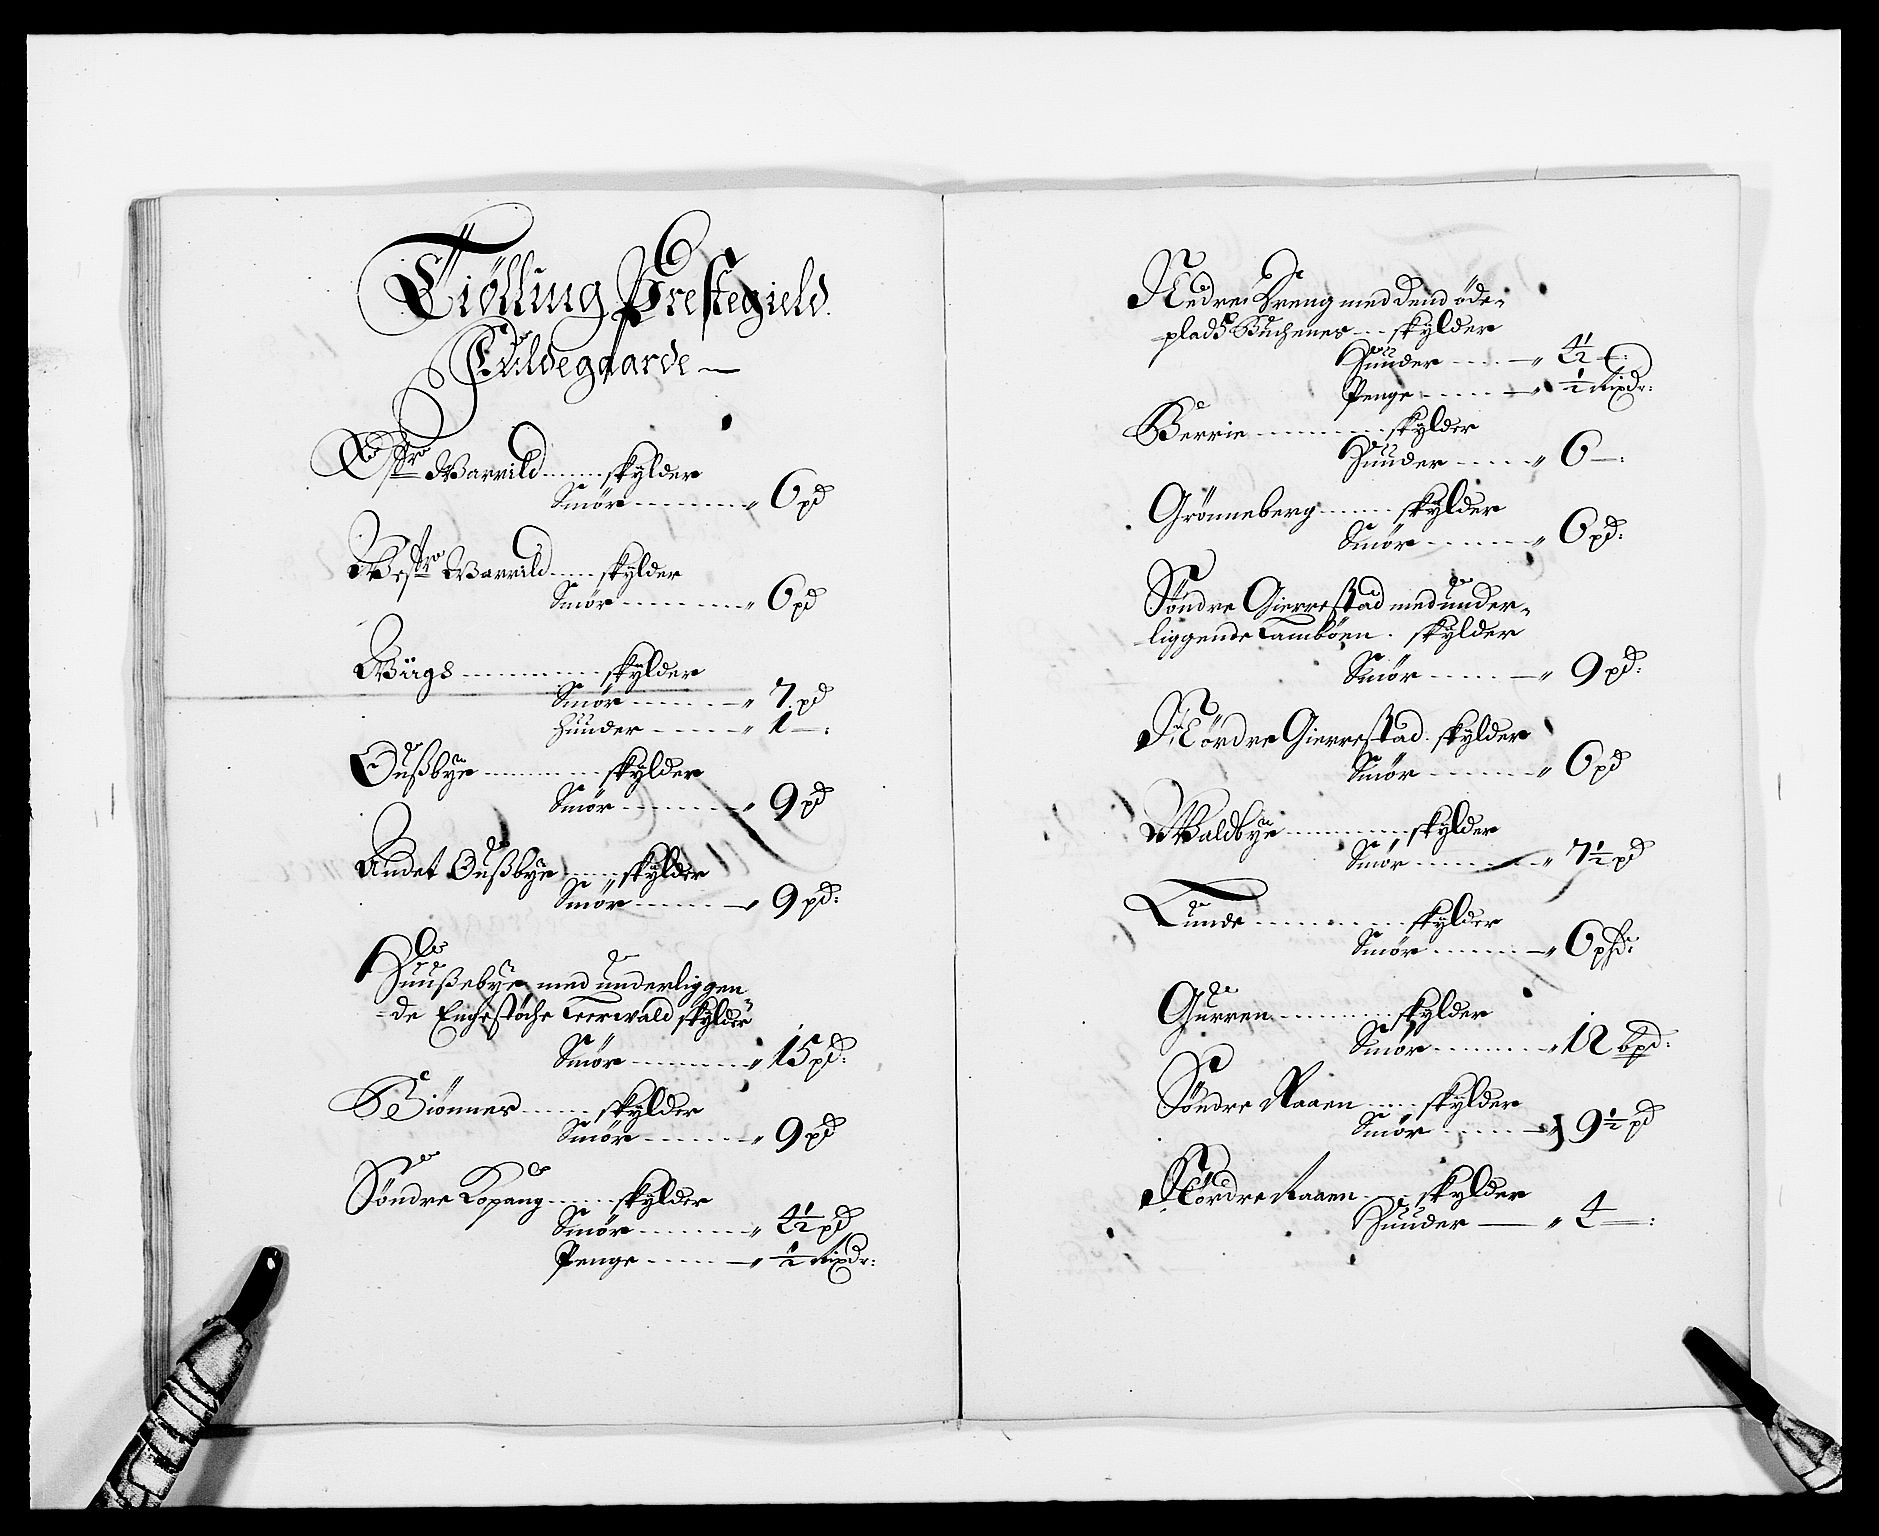 Tiölling Prestegield.
Fuldegaarde —
Østr Varrild ...... skylder
Smör ......... „ 6 pd
Westr Varrild ..... skylder
Smör ......... „ 6 pd
Wiigs ......... skylder
Smör ...... „ 7. pd
Huuder ..... „ 1 —:
Oußbye ......... skylder
Smör ......... „ 9 pd
Andet Oußbye ..... skylder
Smör ...... „ 9 pd:
Huußebye med underliggen
-de Engestöche Teerwald skylder
Smör ......... „ 15 pd:
Biönnes ...... skylder
Smör ......... „ 9 pd
Söndre Kopang ...... skylder
Smör ......... „ 4½ pd
Penge ...... „ ½ Rixdr:
Nedre Hreng med dend öde-
pladß Buchenes ... skylder
Huuder ..... „ 4½ —:
Penge ...... „ ½ Rixdr:
Berrie ......... skylder
Huuder ..... „ 6 —:
Grönneberg ...... skylder
Smör ...... „ 6 pd:
Söndre Gierrestad med under-
liggende Lamböen . skylder
Smör ...... „ 9 pd:
Nördre Gierrestad . skylder
Smör ...... „ 6 pd
Waldbye ......... skylder
Smör ......... „ 7½ pd
Lunde ......... skylder
Smör ...... „ 6 pd:
Gurren ......... skylder
Smör ......... „ 12 bpd:
Söndre Raaen ..... skylder
Smör ...... „ 9½ pd
Nördre Raaen .... skylder
Huuder — „ 4 —: